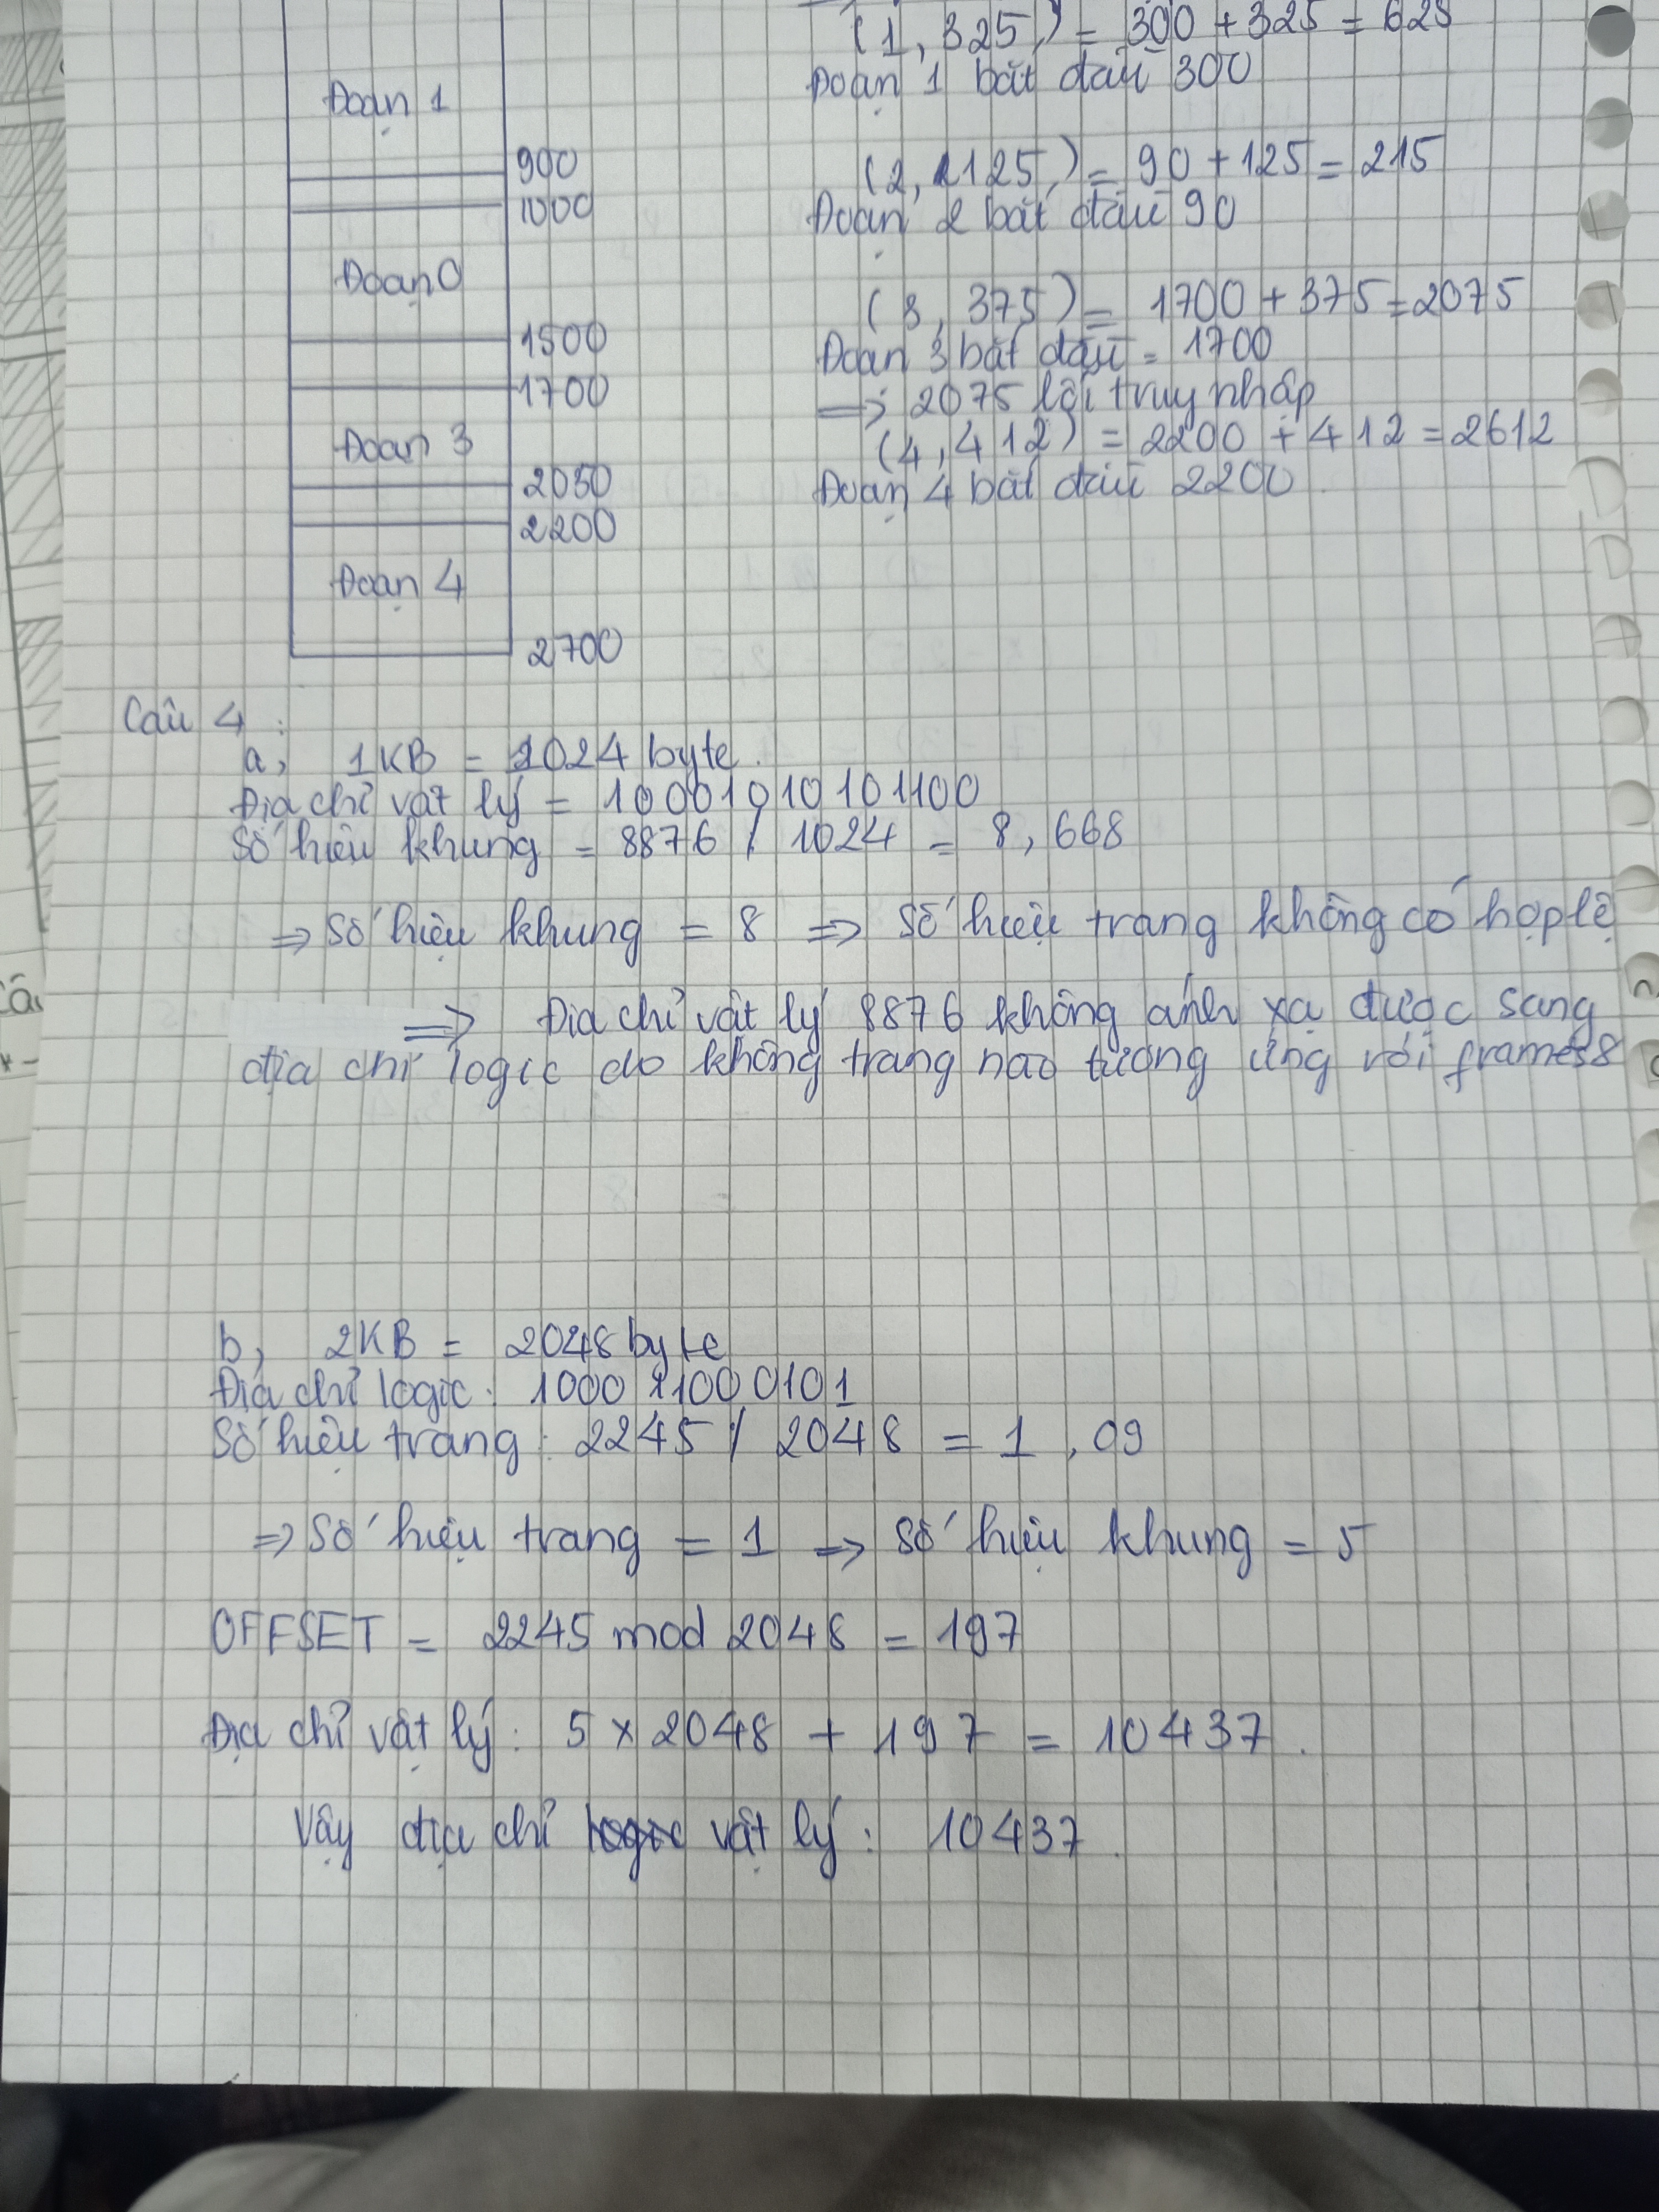 (1, 325) = 300 + 325 = 625
Đoạn 1 bắt đầu 300
Đoạn 1
900
(2, 125) = 90 + 125 = 215
1000
Đoạn 2 bắt đầu 90
Đoạn 0
(3, 375) = 1700 + 375 = 2075
1500
Đoạn 3 bắt đầu = 1700
1700
=> 2075 lỗi truy nhập
Đoạn 3
(4, 412) = 2200 + 412 = 2612
2050
Đoạn 4 bắt đầu 2200
2200
Đoạn 4
2700
Câu 4 :
a, 1KB = 1024 byte.
Địa chỉ vật lý = 10001010101100
Số hiệu khung = 8876 / 1024 = 8,668
=> Số hiệu khung = 8 => Số hiệu trang không có hợp lệ
=> Địa chỉ vật lý 8876 không ánh xạ được sang
địa chỉ logic do không trang nào tương ứng với frames 8
b, 2KB = 2048 byte
Địa chỉ logic: 100011000101
Số hiệu trang: 2245 / 2048 = 1,09
=> Số hiệu trang = 1 => Số hiệu khung = 5
OFFSET = 2245 mod 2048 = 197
Địa chỉ vật lý: 5 x 2048 + 197 = 10437.
Vậy địa chỉ vật lý: 10437.